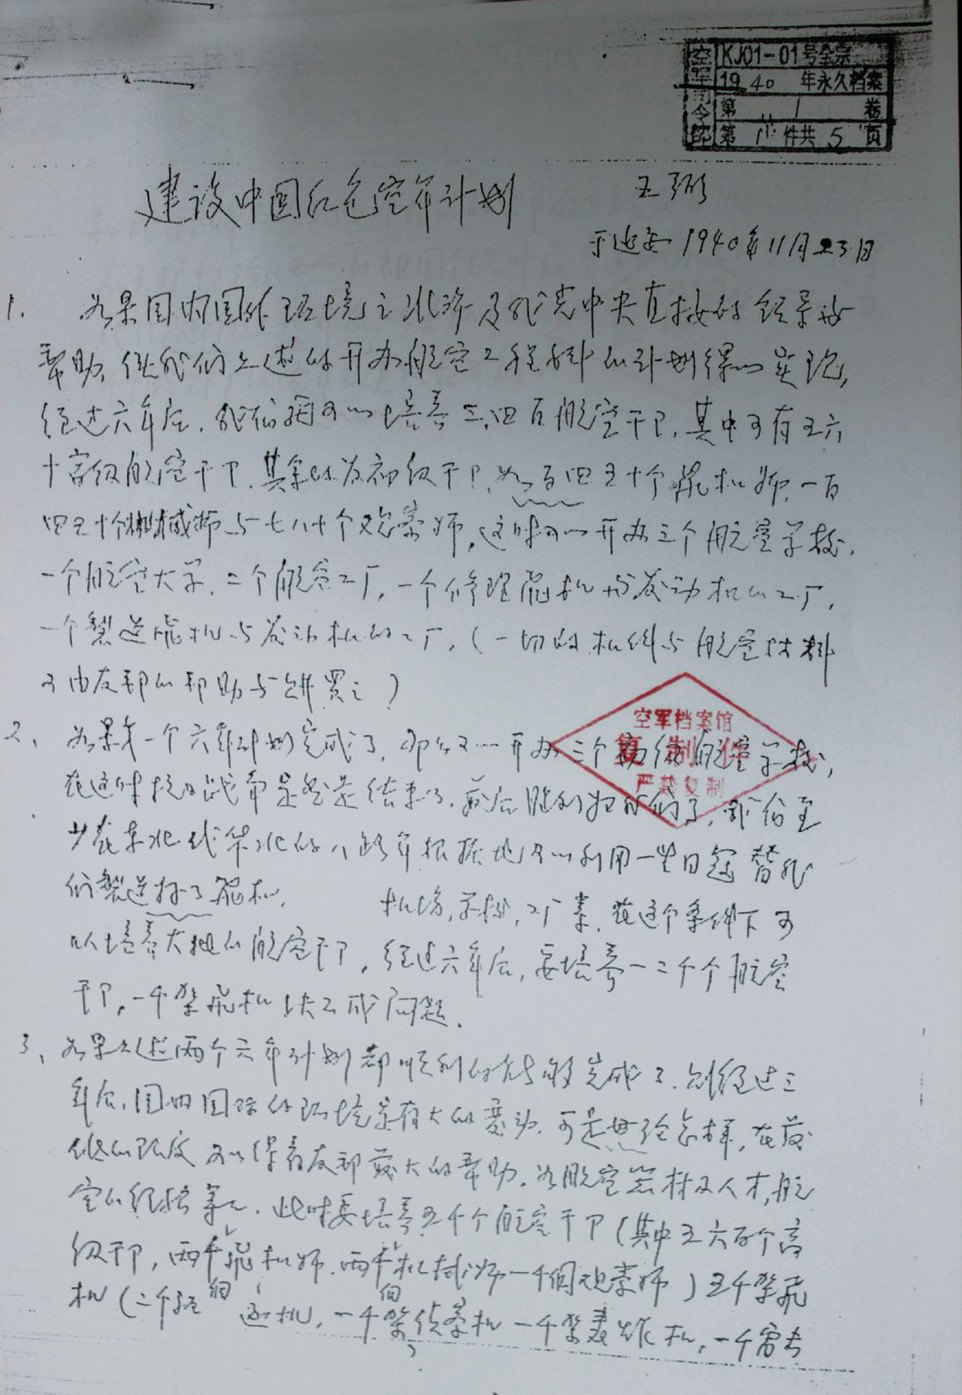 空军司令部
KJ01-01号全宗
1940年永久档案
第1卷
第 件共5页
建设中国红色空军计划
王弼
于延安1940年11月23日
1. 如果国内国外环境之允许及我党中央直接的领导与
帮助,使我们上述的开办航空工程科的计划得以实现,
经过六年后,我们可以培养三四百航空干部,其中可有五六
十高级航空干部,其余以为初级干部,如百四五十个飞机师,一百
四五十个机械师与七八十个观察师,这时可以开办三个航空学校,
一个航空大学,二个航空工厂,一个修理飞机与发动机的工厂,
一个制造飞机与发动机的工厂,(一切的机件与航空材料
可由友邦的帮助与购买之)
2、如果第一个六年计划完成了,那么又可以开办三个初级航空学校,
在这时抗日战争是要是结束了,最后胜利归我们了,我们至
少在东北或华北的八路军根据地可以利用一些日寇替我
们制造好了飞机,机场,学校,工厂等,在这个条件下可
以培养大批的航空干部,经过六年后,要培养一二千个航空
干部,一千架飞机是不成问题.
3、如果上述两个六年计划都顺利的能够完成了,则经过三
年后,国内国际的环境是有大的变动,可是无论怎样,在最
低的限度可以得着友邦最大的帮助,如航空器材及人才,航
空的经验等.此时要培养五千个航空干部(其中五六百个高
级干部,两千飞机师,两千机械师一千个观察师)五千架飞
机(二千 驱逐机,一千架侦察机一千架轰炸机,一千
空军档案馆
复制件
严禁复制